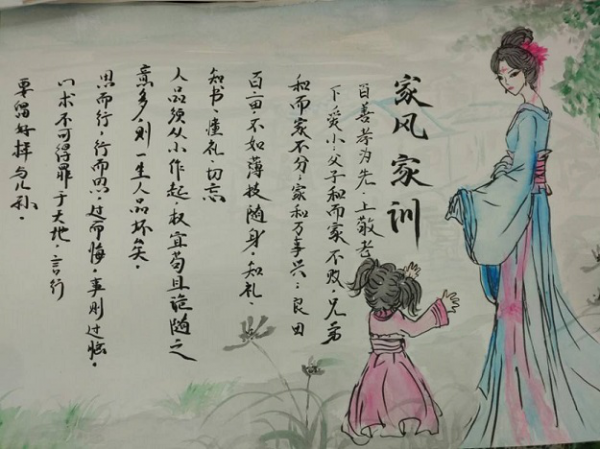 家风家训
百善孝为先·上敬老
下爱小·父子和而家不败·兄弟
和而家不分·家和万事兴：良田
百亩·不如薄技随身·知礼
知书·懂礼·切忌
人品须从小作起·权宜苟且诡随之
意多·则一生人品坏矣·
思而行·行而思·过而悔·事则过
心术不可得罪于天地·言行
要留好样与儿孙·